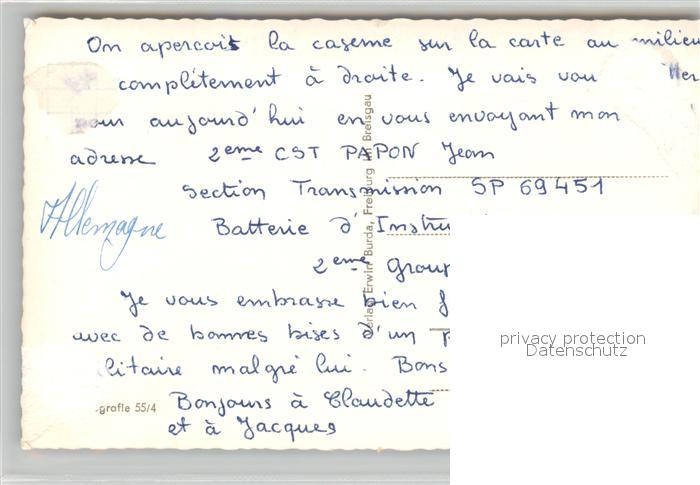 On apercois la caserne sur la carte au milieu
complétement à droite. Je vais vou
pour aujourd'hui en vous envoyant mon
adresse 2eme CST PAPON Jean
Section Transmission SP 69451
Allemagne
Batterie d'Instru
2eme Group
Je vous embrasse bien
avec de bonnes bises d'un
litaire malgré lui. Bons
Bonjours à Claudette
et à Jacques
grafie 55/4
Verlag Erwin Burda, Freiburg im Breisgau
privacy protection
Datenschutz